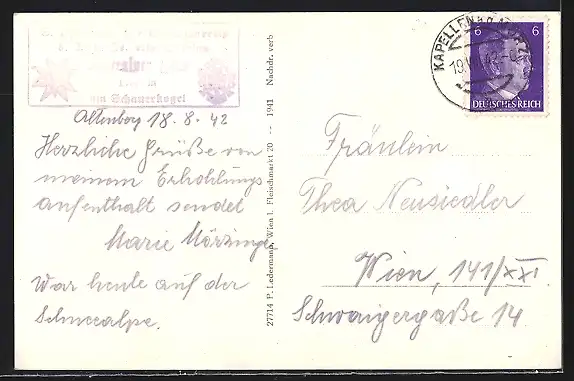 am Schauerkogel
Altenberg 18.8.42
Herzliche Grüße von
meinem Erhohlungs
aufenthalt sendet
Marie
War heute auf der
Schneealpe.
27714 P. Ledermann, Wien I. Fleischmarkt 20 -- 1941 Nachdr. verb
KAPELLEN
19
6 6
DEUTSCHES REICH
Fräulein
Thea Neusiedler
Wien, 141/XXI
Schwaigergaße 14